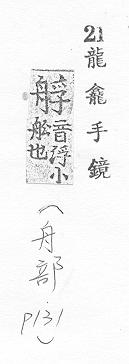 21龍龕手鏡
艀音浮小
舟舩也
(舟部
p131)